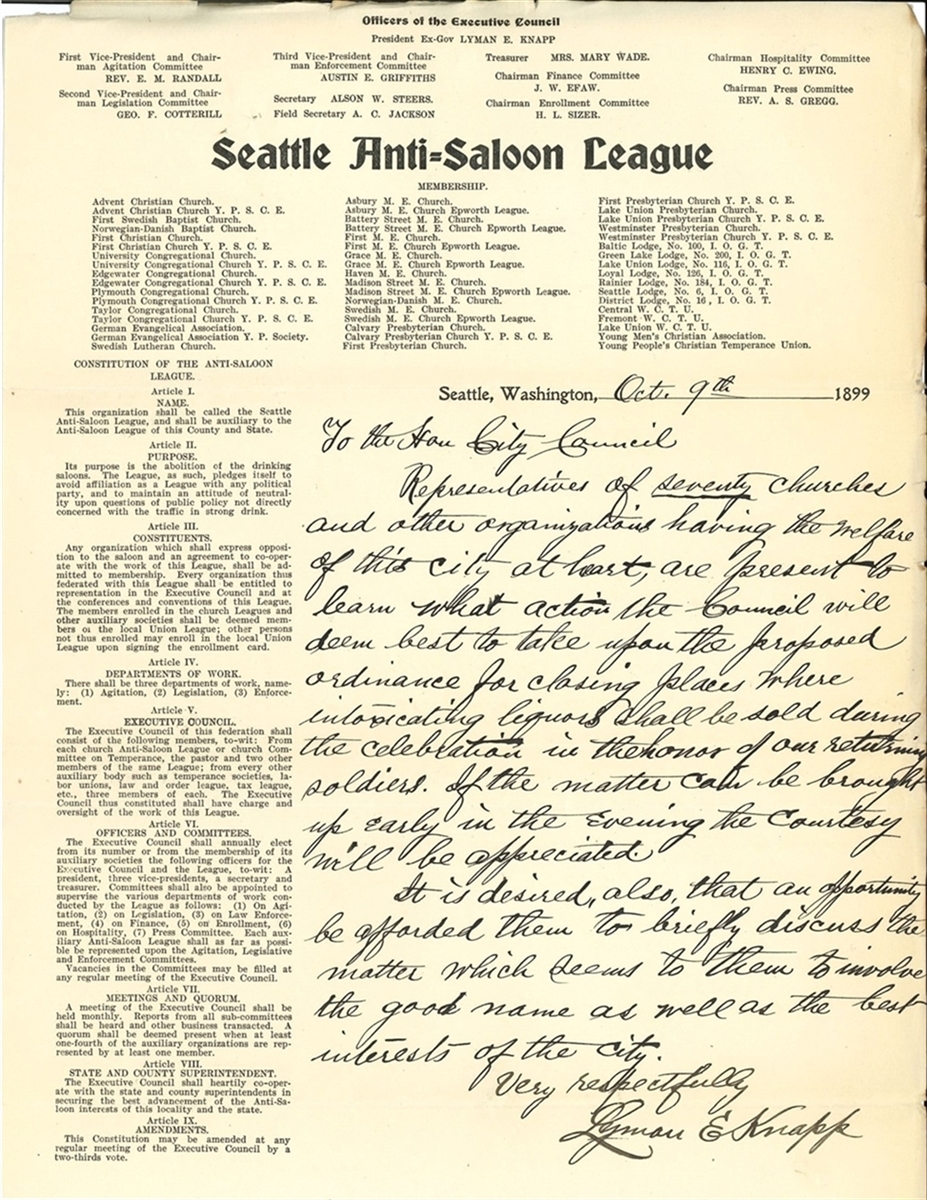 Officers of the Executive Council
President Ex-Gov LYMAN E. KNAPP
First Vice-President and Chair-
man Agitation Committee
REV. E. M. RANDALL
Second Vice-President and Chair-
man Legislation Committee
GEO. F. COTTERILL
Third Vice-President and Chair-
man Enforcement Committee
AUSTIN E. GRIFFITHS
Secretary ALSON W. STEERS.
Field Secretary A. C. JACKSON
Treasurer MRS. MARY WADE.
Chairman Finance Committee
J. W. EFAW.
Chairman Enrollment Committee
H. L. SIZER.
Chairman Hospitality Committee
HENRY C. EWING.
Chairman Press Committee
REV. A. S. GREGG.
Seattle Anti-Saloon League
MEMBERSHIP.
Advent Christian Church.
Advent Christian Church Y. P. S. C. E.
First Swedish Baptist Church.
Norwegian-Danish Baptist Church.
First Christian Church.
First Christian Church Y. P. S. C. E.
University Congregational Church.
University Congregational Church Y. P. S. C. E.
Edgewater Congregational Church.
Edgewater Congregational Church Y. P. S. C. E.
Plymouth Congregational Church.
Plymouth Congregational Church Y. P. S. C. E.
Taylor Congregational Church.
Taylor Congregational Church Y. P. S. C. E.
German Evangelical Association.
German Evangelical Association Y. P. Society.
Swedish Lutheran Church.
Asbury M. E. Church.
Asbury M. E. Church Epworth League.
Battery Street M. E. Church.
Battery Street M. E. Church Epworth League.
First M. E. Church.
First M. E. Church Epworth League.
Grace M. E. Church.
Grace M. E. Church Epworth League.
Haven M. E. Church.
Madison Street M. E. Church.
Madison Street M. E. Church Epworth League.
Norwegian-Danish M. E. Church.
Swedish M. E. Church.
Swedish M. E. Church Epworth League.
Calvary Presbyterian Church.
Calvary Presbyterian Church Y. P. S. C. E.
First Presbyterian Church.
First Presbyterian Church Y. P. S. C. E.
Lake Union Presbyterian Church.
Lake Union Presbyterian Church Y. P. S. C. E.
Westminster Presbyterian Church.
Westminster Presbyterian Church Y. P. S. C. E.
Baltic Lodge, No. 100, I. O. G. T.
Green Lake Lodge, No. 200, I. O. G. T.
Lake Union Lodge, No. 116, I. O. G. T.
Loyal Lodge, No. 126, I. O. G. T.
Rainier Lodge, No. 184, I. O. G. T.
Seattle Lodge, No. 6, I. O. G. T.
District Lodge, No. 16, I. O. G. T.
Central W. C. T. U.
Fremont W. C. T. U.
Lake Union W. C. T. U.
Young Men's Christian Association.
Young People's Christian Temperance Union.
CONSTITUTION OF THE ANTI-SALOON
LEAGUE.
Article I.
NAME.
This organization shall be called the Seattle
Anti-Saloon League, and shall be auxiliary to the
Anti-Saloon League of this County and State.
Article II.
PURPOSE.
Its purpose is the abolition of the drinking
saloons. The League, as such, pledges itself to
avoid affiliation as a League with any political
party, and to maintain an attitude of neutral-
ity upon questions of public policy not directly
concerned with the traffic in strong drink.
Article III.
CONSTITUENTS.
Any organization which shall express opposi-
tion to the saloon and an agreement to co-oper-
ate with the work of this League, shall be ad-
mitted to membership. Every organization thus
federated with this League shall be entitled to
representation in the Executive Council and at
the conferences and conventions of this League.
The members enrolled in the church Leagues and
other auxiliary societies shall be deemed mem-
bers of the local Union League; other persons
not thus enrolled may enroll in the local Union
League upon signing the enrollment card.
Article IV.
DEPARTMENTS OF WORK.
There shall be three departments of work, name-
ly: (1) Agitation, (2) Legislation, (3) Enforce-
ment.
Article V.
EXECUTIVE COUNCIL.
The Executive Council of this federation shall
consist of the following members, to-wit: From
each church Anti-Saloon League or church Com-
mittee on Temperance, the pastor and two other
members of the same League; from every other
auxiliary body such as temperance societies, la-
bor unions, law and order league, tax league,
etc., three members of each. The Executive
Council thus constituted shall have charge and
oversight of the work of this League.
Article VI.
OFFICERS AND COMMITTEES.
The Executive Council shall annually elect
from its number or from the membership of its
auxiliary societies the following officers for the
Executive Council and the League, to-wit: A
president, three vice-presidents, a secretary and
treasurer. Committees shall also be appointed to
supervise the various departments of work con-
ducted by the League as follows: (1) On Agi-
tation, (2) on Legislation, (3) on Law Enforce-
ment, (4) on Finance, (5) on Enrollment, (6)
on Hospitality, (7) Press Committee. Each aux-
iliary Anti-Saloon League shall as far as possi-
ble be represented upon the Agitation, Legislative
and Enforcement Committees.
Vacancies in the Committees may be filled at
any regular meeting of the Executive Council.
Article VII.
MEETINGS AND QUORUM.
A meeting of the Executive Council shall be
held monthly. Reports from all sub-committees
shall be heard and other business transacted. A
quorum shall be deemed present when at least
one-fourth of the auxiliary organizations are rep-
resented by at least one member.
Article VIII.
STATE AND COUNTY SUPERINTENDENT.
The Executive Council shall heartily co-oper-
ate with the state and county superintendents in
securing the best advancement of the Anti-Sa-
loon interests of this locality and the state.
Article IX.
AMENDMENTS.
This Constitution may be amended at any
regular meeting of the Executive Council by a
two-thirds vote.
Seattle, Washington, Oct. 9th 1899
To the Hon City Council
Representatives of seventy churches
and other organizations having the welfare
of this city at heart, are present to
learn what action the Council will
deem best to take upon the proposed
ordinance for closing places where
intoxicating liquors shall be sold during
the celebration in the honor of our returning
soldiers. If the matter can be brought
up early in the evening the courtesy
will be appreciated.
It is desired, also, that an opportunity
be afforded them to briefly discuss the
matter which seems to them to involve
the good name as well as the best
interests of the city.
Very respectfully
Lyman E Knapp